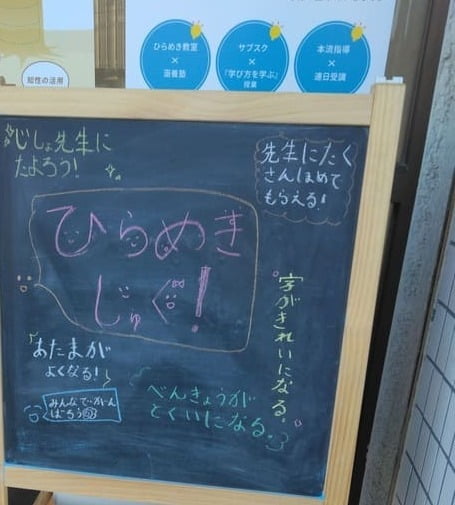 ひらめき教室
×
函養塾
サブスク
×
『学び方を学ぶ』
授業
本流指導
×
連日受講
知性の活用
じしょ先生に
たよろう!
先生にたく
さんほめて
もらえる!
ひらめき
じゅく!
字がきれいになる。
あたまが
よくなる!
みんなでがん
ばろう
べんきょうが
とくいになる。